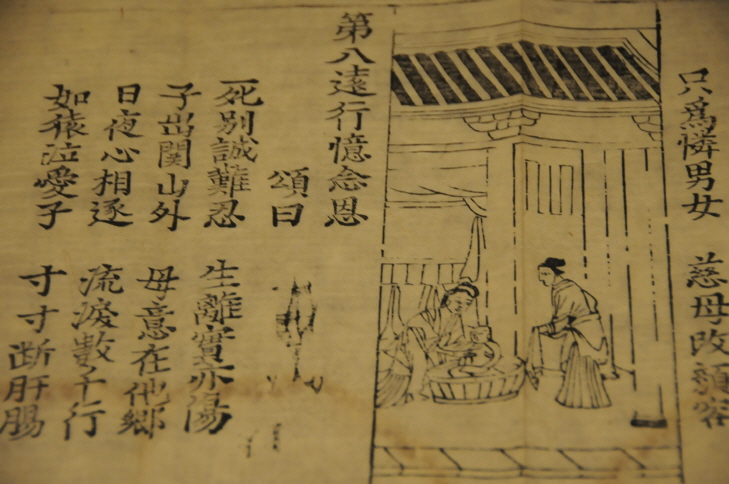 只爲憐男女 慈母改顏容
第八遠行憶念恩
頌曰
死別誠難忍 生離實亦傷
子出關山外 母意在他鄉
日夜心相逐 流淚數千行
如猿泣愛子 寸寸断肝腸